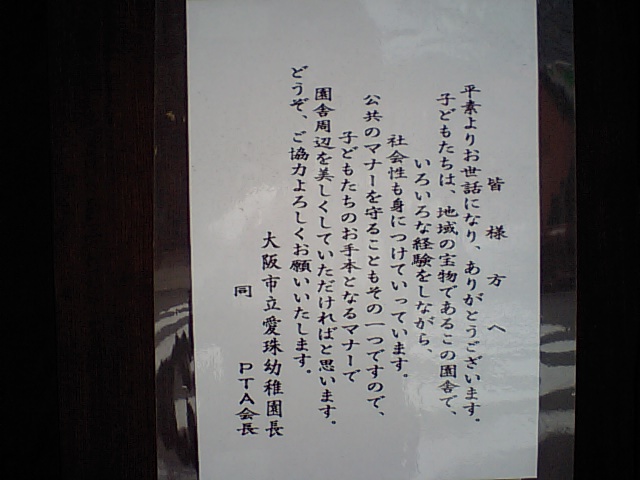 皆様方へ
平素よりお世話になり、ありがとうございます。
子どもたちは、地域の宝物であるこの園舎で、
いろいろな経験をしながら、
社会性も身につけていっています。
公共のマナーを守ることもその一つですので、
子どもたちのお手本となるマナーで
園舎周辺を美しくしていただければと思います。
どうぞ、ご協力よろしくお願いいたします。
大阪市立愛珠幼稚園長
同 PTA会長